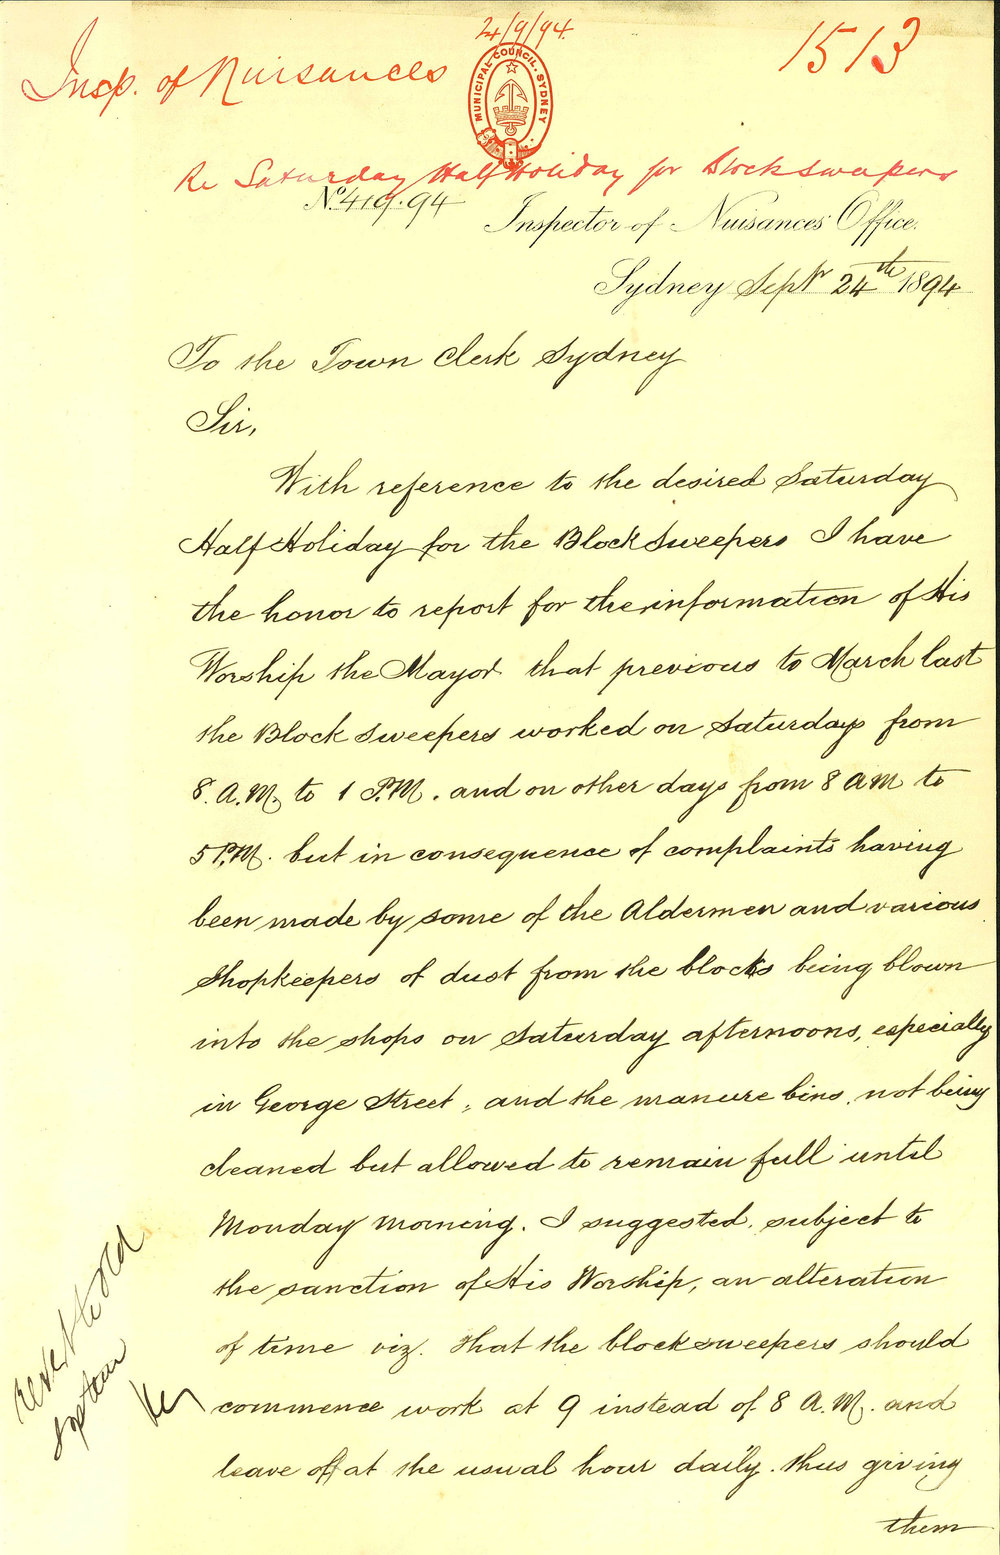 24/9/94.
1513
Insp. of Nuisances
MUNICIPAL COUNCIL. SYDNEY
Re Saturday Half Holiday for Blocksweepers
No. 419.94
Inspector of Nuisances Office.
Sydney Septr 24th 1894
To the Town Clerk Sydney
Sir,
With reference to the desired Saturday
Half Holiday for the Block Sweepers I have
the honor to report for the information of His
Worship the Mayor that previous to March last
the Block Sweepers worked on Saturdays from
8. A.M. to 1 P.M. and on other days from 8 AM to
5 P.M. but in consequence of complaints having
been made by some of the Aldermen and various
Shopkeepers of dust from the blocks being blown
into the shops on Saturday afternoons, especially
in George Street, and the manure bins, not being
cleaned but allowed to remain full until
Monday morning. I suggested, subject to
the sanction of His Worship, an alteration
of time viz. that the blocksweepers should
commence work at 9 instead of 8 A.M. and
leave off at the usual hour daily. thus giving
them
revert to old
system